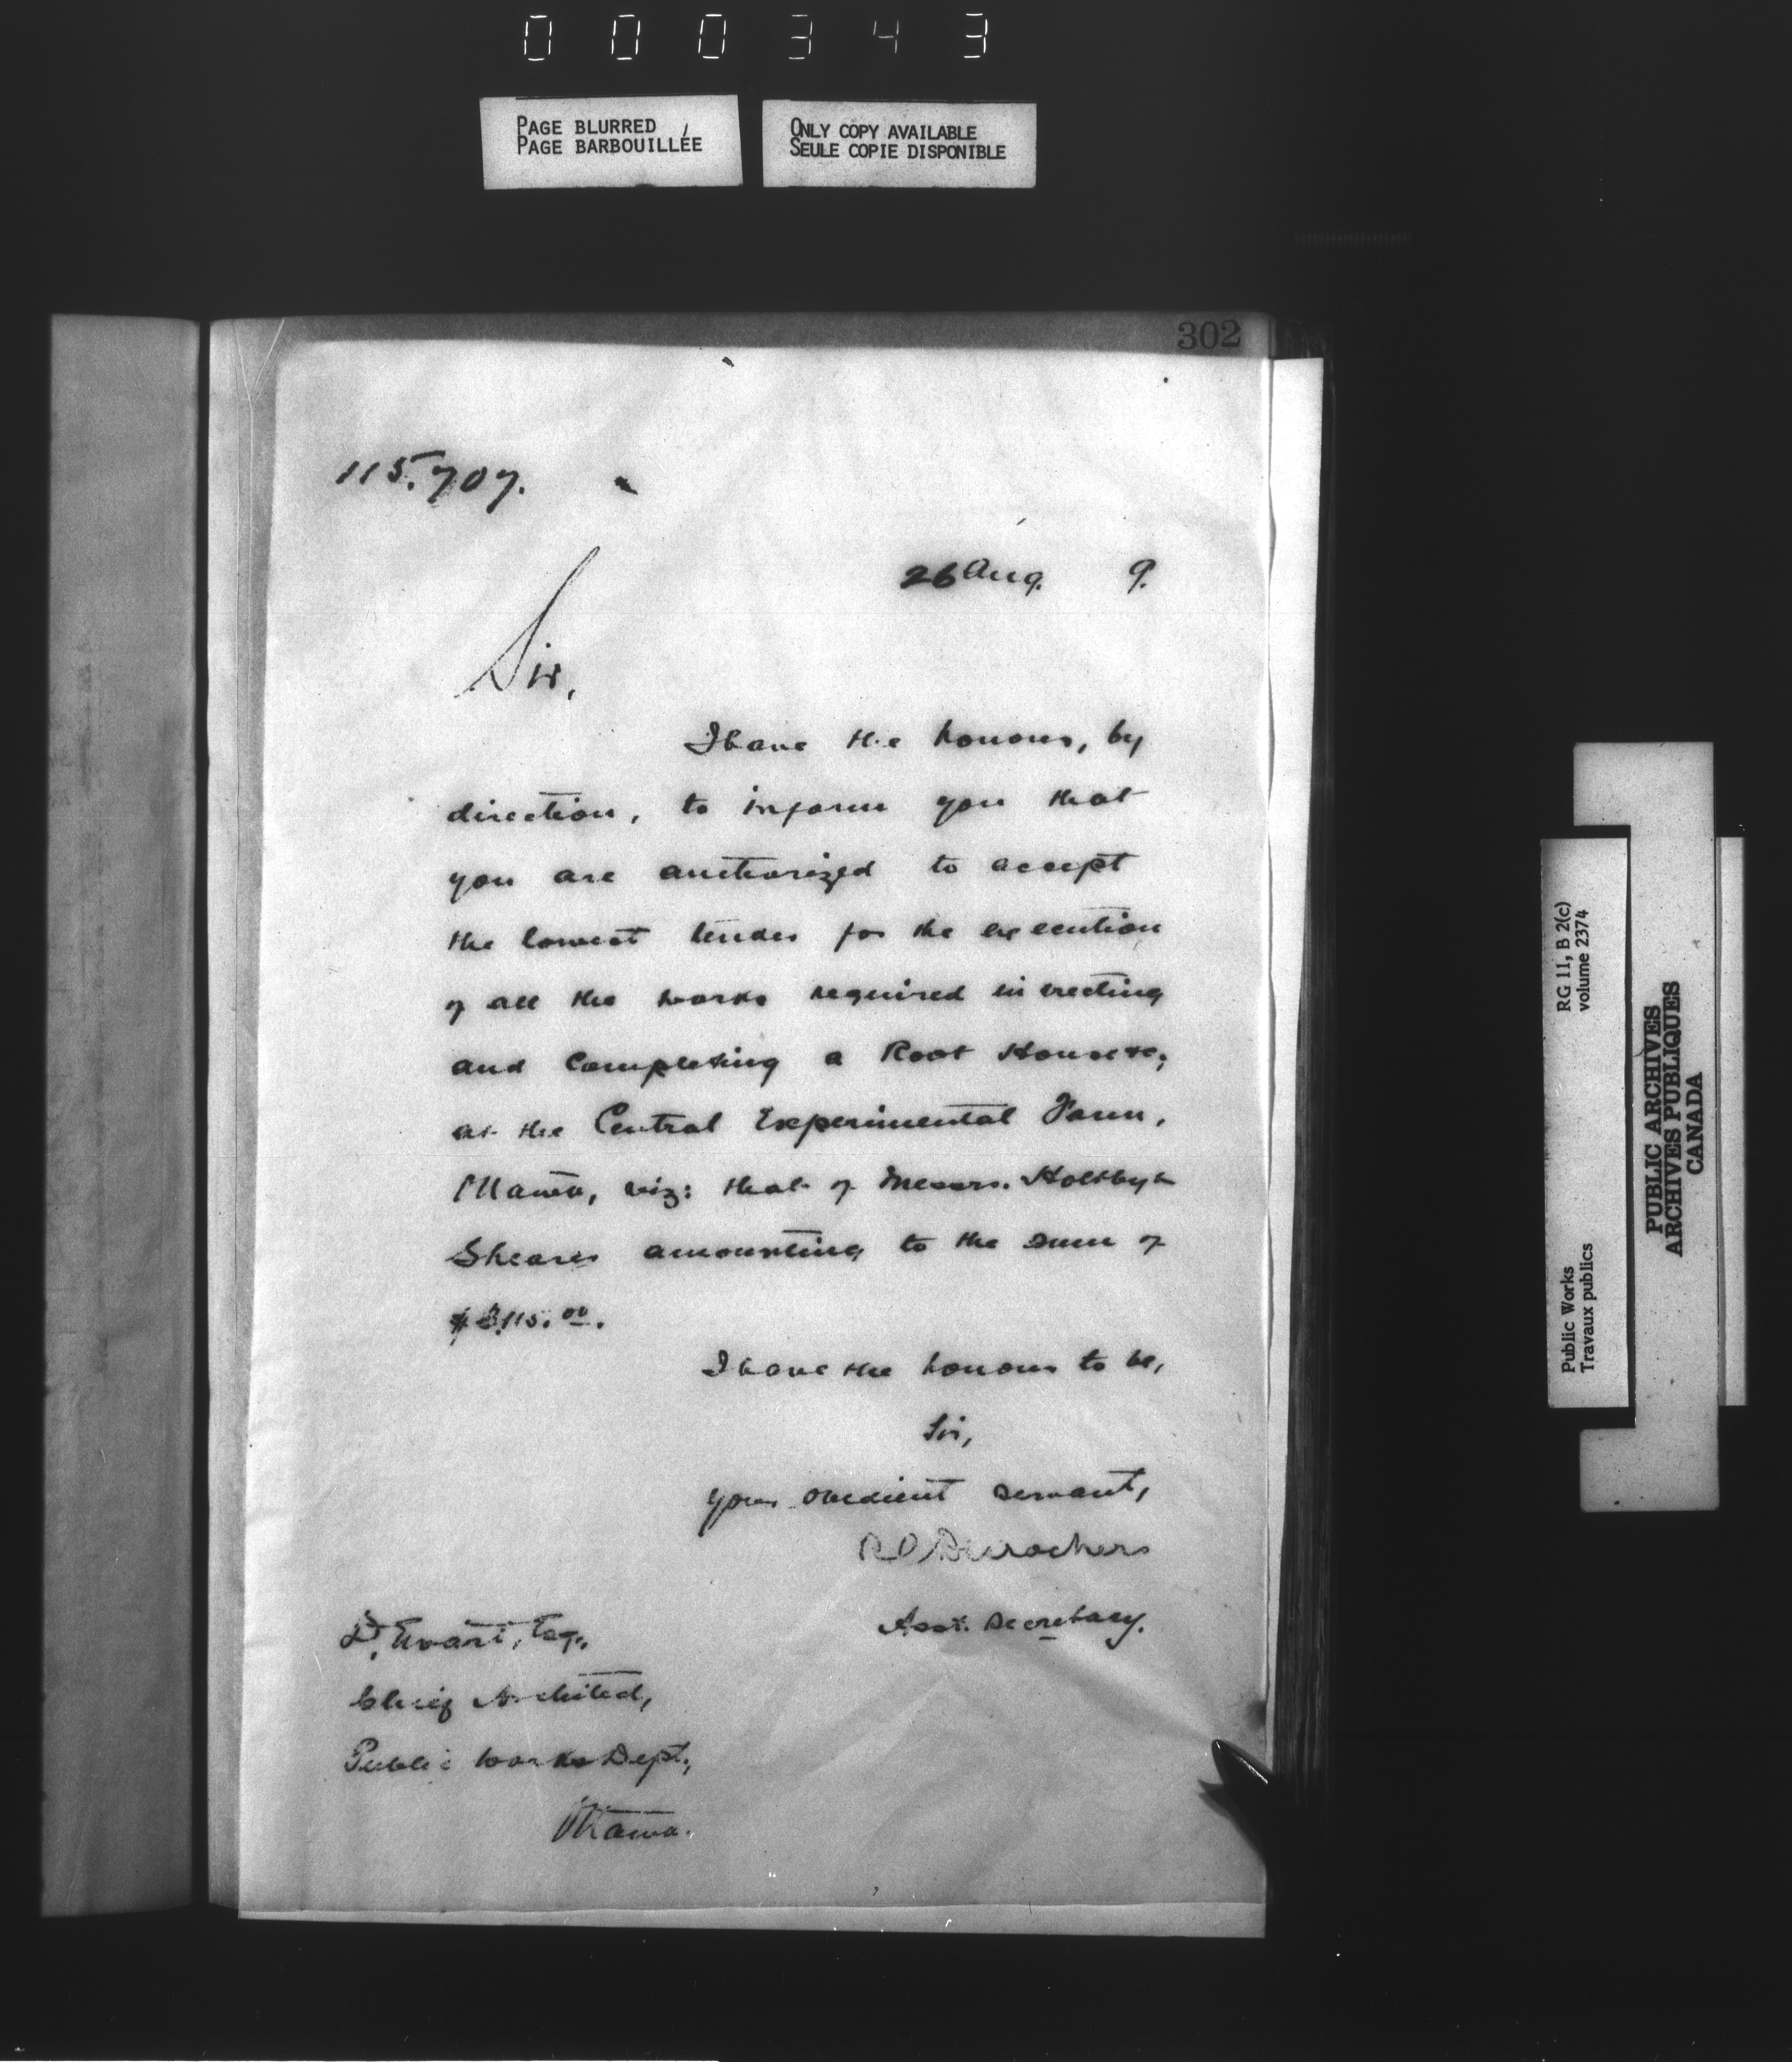 000343
PAGE BLURRED
PAGE BARBOUILLÉE
ONLY COPY AVAILABLE
SEULE COPIE DISPONIBLE
302
115.707.
26 Aug. 9.
Sir,
I have the honour, by
direction, to inform you that
you are authorized to accept
the lowest tender for the execution
of all the works required in erecting
and completing a Root House &c,
at the Central Experimental Farm,
Ottawa, viz: that of Messrs. Holtby &
Shearer amounting to the sum of
I have the honour to be,
Sir,
Your obedient servant,
Asst. Secretary.
D. Ewart, Esq.,
Chief Architect,
Public Works Dept.,
Ottawa.
RG 11, B 2(c)
volume 2374
Public Works
Travaux publics
PUBLIC ARCHIVES
ARCHIVES PUBLIQUES
CANADA